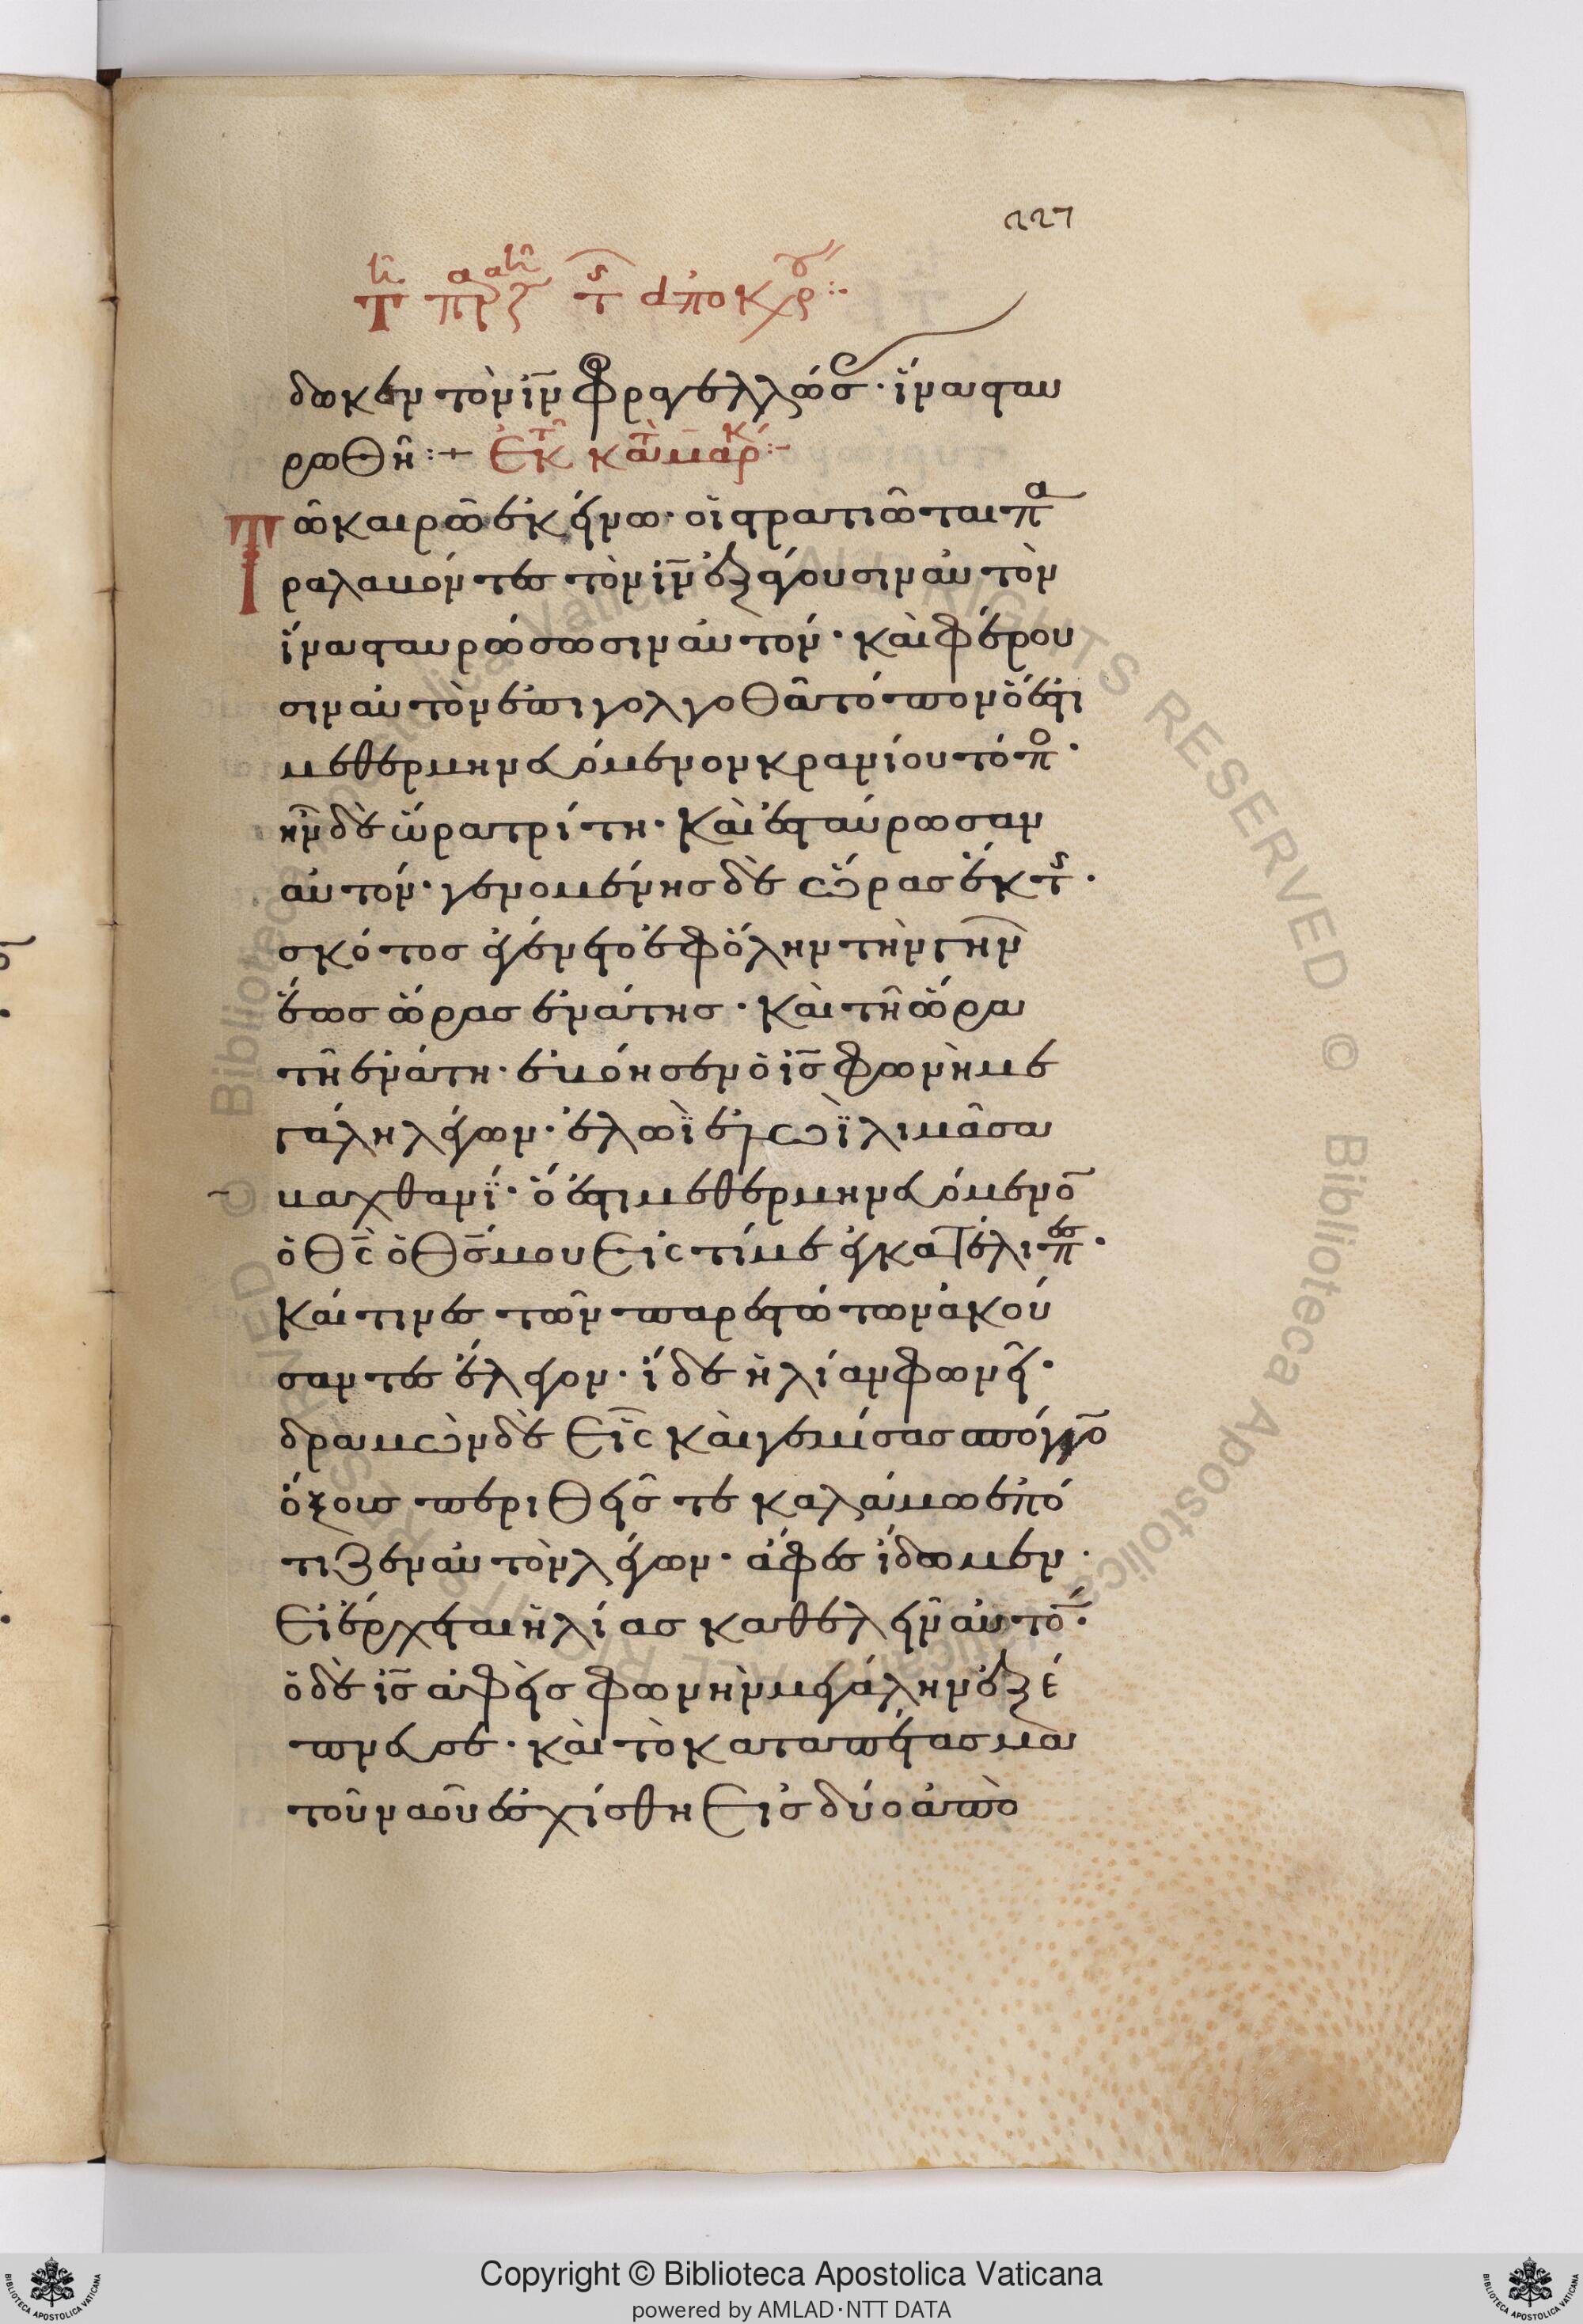 227
τῇ παρασκ τῆς ἀποκρ
δωκεν τὸν ἰν φραγελλώσ· ἵνα σταυ
ρωθῆ:+ Ἐκ τ κατ μαρκ:-
Τῶ καιρῶ ἐκείνω· οἱ στρατιῶται πα
ραλαβόντες τὸν ἰν ἐξάγουσιν αὐτὸν
ἵνα σταυρώσωσιν αὐτόν· καὶ φέρου
σιν αὐτὸν ἐπι γολγοθᾶ τόπον ὅ ἐστι
μεθερμηνευόμενον κρανίου τόπο·
ἦν δὲ ὥρα τρίτη· Καὶ ἐσταύρωσαν
αὐτόν· γενομένησ δὲ ὥρασ ἕκτης·
σκότοσ ἐγένετο ἐφ ὅλην τὴν γῆν
ἕωσ ὥρασ ἐνάτησ· Καὶ τῆ ὥρα
τῆ ἐνάτη· ἐβόησεν ὁ ἰσ φωνὴ με
γάλη λέγων· ἐλωῒ ἐλωῒ λιμᾶ σα
βαχθανΐ· ὅ ἐστι μεθερμηνευόμενο
ὁ θσ ὁ θσ μου Εἰς τί με ἐγκατέλιπες·
Καί τινες τῶν παρεστώτων ἀκού
σαντες ἔλεγον· ἴδε ἠλίαν φωνεῖ·
δραμὼν δὲ Εἷς καὶ γεμίσασ σπόγγο
ὄξουσ περιθείσ τε καλάμω ἐπό
τιζεν αὐτὸν λέγων· ἄφες ἴδωμεν·
Εἰ ἔρχεται ἠλίασ καθελεῖν αὐτό·
ὁ δὲ ἰσ ἀφεὶσ φωνὴν μεγάλην ἐξέ
πνευσε· καὶ τὸ καταπέτασμα
τοῦ ναοῦ ἐσχίσθη Εἰσ δύο ἀπὸ
Copyright © Biblioteca Apostolica Vaticana
powered by AMLAD·NTT DATA